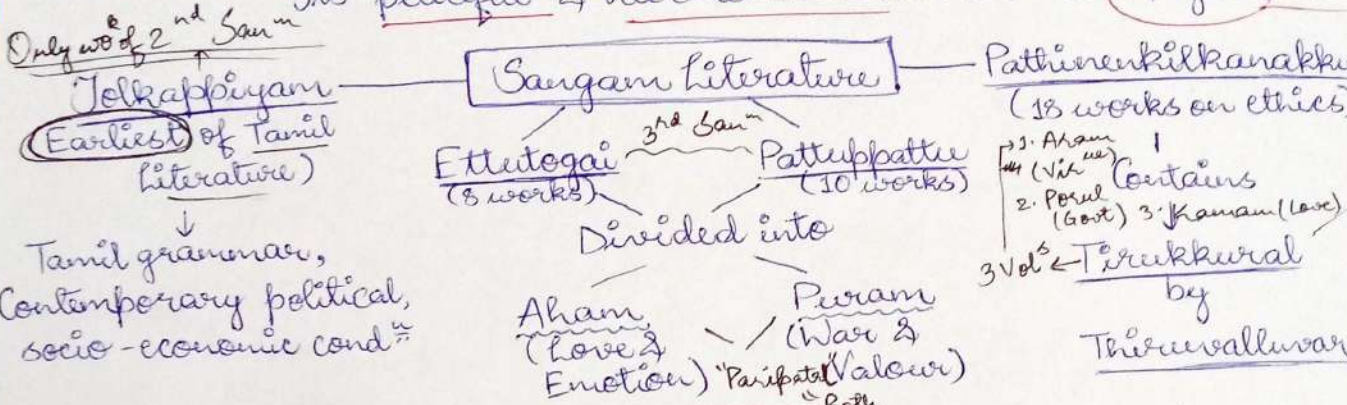 Only wo^k of 2^nd San^m
Tolkappiyam
(Earliest of Tamil
literature)
↓
Tamil grammar,
Contemporary political,
socio-economic cond^n
Sangam Literature
3^rd San^m
Ettutogai
(8 works)
Pattuppattu
(10 works)
Divided into
Aham
(Love &
Emotion)
Puram
(War &
Valour)
"Paripatal
"Both
Pathinenkilkanakku
(18 works on ethics)
Contains
1. Aham
(Vir^ue)
2. Porul
(Govt)
3. Kamam (Love)
3 Vol^s ← Tirukkural
by
Thiruvalluvar